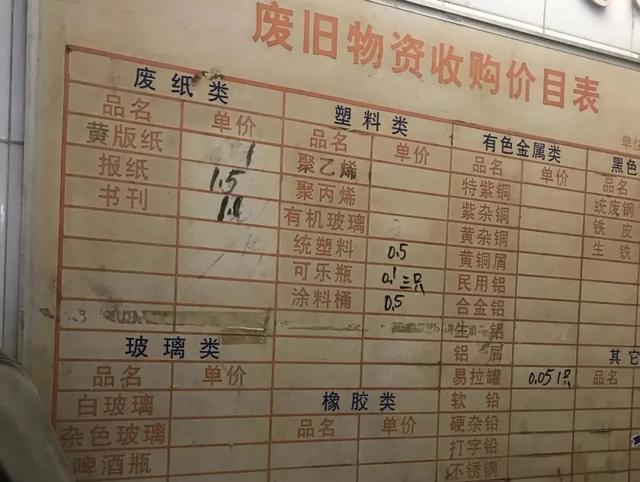 废旧物资收购价目表
单位
废纸类
品名 单价
黄版纸 1
报纸 1.5
书刊 1.1
玻璃类
品名 单价
白玻璃
杂色玻璃
啤酒瓶
塑料类
品名 单价
聚乙烯
聚丙烯
有机玻璃
统塑料 0.5
可乐瓶 0.1三只
涂料桶 0.5
橡胶类
品名 单价
有色金属类
品名 单价
特紫铜
紫杂铜
黄杂铜
黄铜屑
民用铝
合金铝
生铝
铝屑
易拉罐 0.051只
软铅
硬杂铅
打字铅
不锈钢
黑色
品名
统废钢
铁皮
生铁
其它
品名